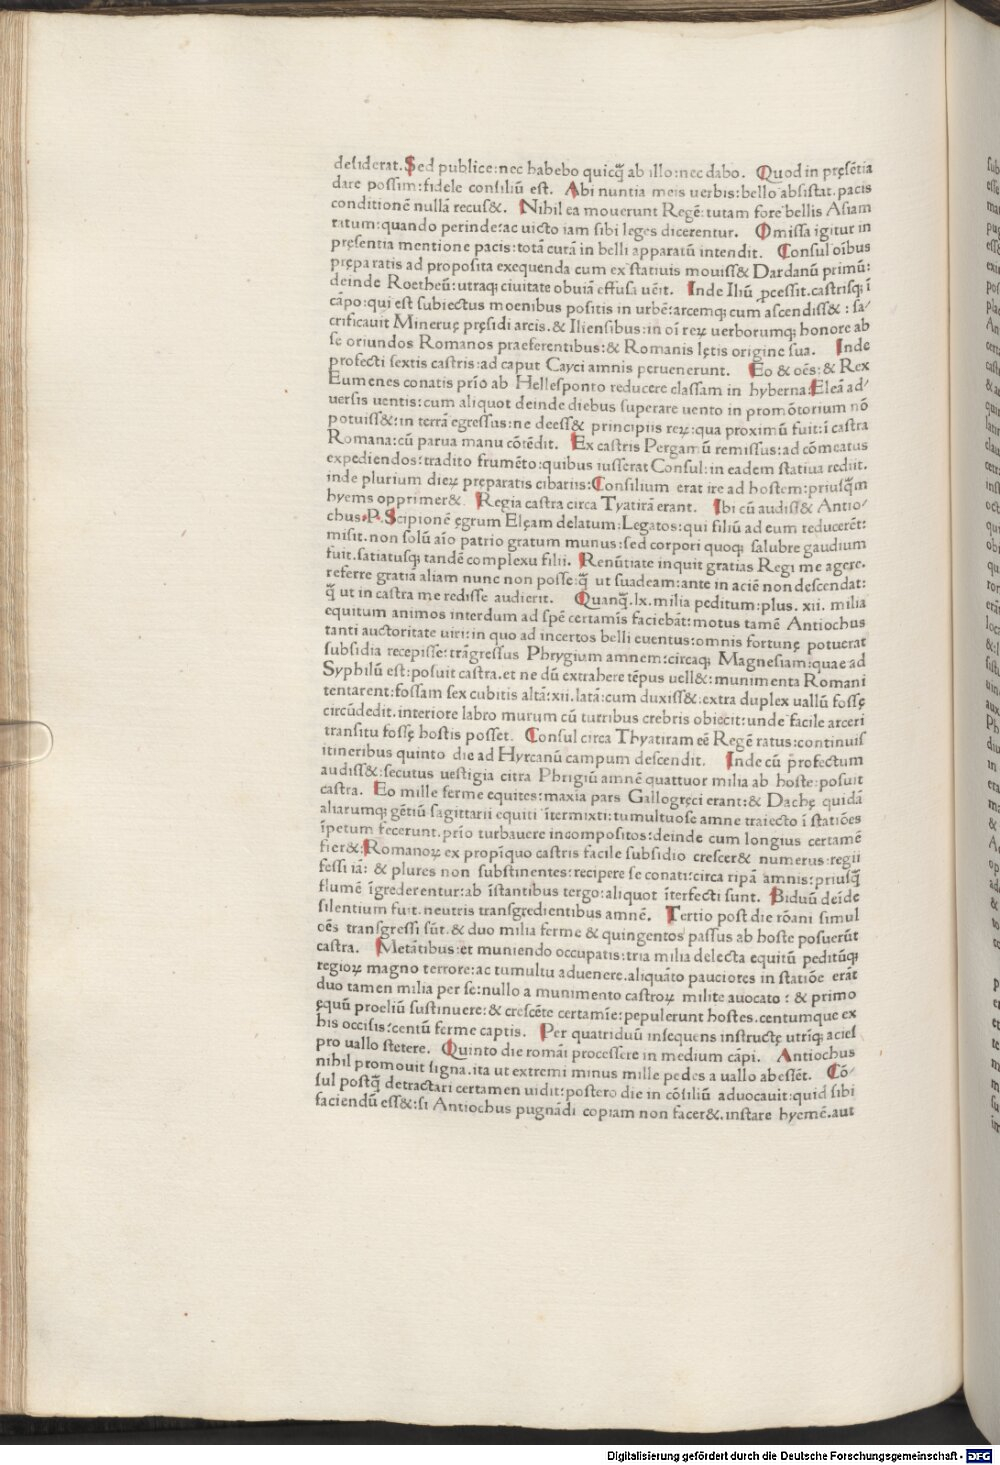 desiderat. Sed publice: nec habebo quicq̄ ab illo: nec dabo. Quod in pręsētia
dare possim: fidele consiliū est. Abi nuntia meis uerbis: bello absistat. pacis
conditionē nullā recus&. Nihil ea mouerunt Regē: tutam fore bellis Asiam
ratum: quando perinde: ac uicto iam sibi leges dicerentur. Omissa igitur in
pręsentia mentione pacis: totā curā in belli apparatū intendit. Consul oībus
pręparatis ad proposita exequenda cum ex statiuis mouiss& Dardanū primū:
deinde Roetheū: utraq; ciuitate obuiā effusa uēit. Inde Iliū ꝓcessit. castrisq; ī
cāpo: qui est subiectus moenibus positis in urbē: arcemq; cum ascendiss&: sa⸗
crificauit Mineruę pręsidi arcis. & Iliensibus: in oī reꝝ uerborumq; honore ab
se oriundos Romanos praeferentibus: & Romanis lętis origine sua. Inde
profecti sextis castris: ad caput Cayci amnis peruenerunt. Eo & oēs: & Rex
Eumenes conatis prīo ab Hellesponto reducere classam in hyberna: Eleā ad⸗
uersis uentis: cum aliquot deinde diebus superare uento in promōtorium nō
potuiss&: in terrā egressus: ne deess& principiis reꝝ: qua proximū fuit: ī castra
Romana: cū parua manu cōtēdit. Ex castris Pergamū remissus: ad cōmeatus
expediendos: tradito frumēto: quibus iusserat Consul: in eadem statiua rediit.
inde plurium dieꝝ pręparatis cibariis: Consilium erat ire ad hostem: priusq̄m
hyems opprimer&. Regia castra circa Tyatirā erant. Ibi cū audiss& Antio⸗
chus. P. Scipionē ęgrum Elęam delatum: Legatos: qui filiū ad eum reducerēt:
misit. non solū aīo patrio gratum munus: sed corpori quoq; salubre gaudium
fuit. satiatusq; tandē complexu filii. Renūtiate inquit gratias Regi me agere.
referre gratiā aliam nunc non posse: q̄ ut suadeam: ante in aciē non descendat:
q̄ ut in castra me redisse audierit. Quanq̄. lx. milia peditum: plus. xii. milia
equitum animos interdum ad spē certamīs faciebāt: motus tamē Antiochus
tanti auctoritate uiri: in quo ad incertos belli euentus: omnis fortunę potuerat
subsidia recepisse: trāgressus Phrygium amnem: circaq; Magnesiam: quae ad
Syphilū est: posuit castra. et ne dū extrahere tēpus uell&: munimenta Romani
tentarent: fossam sex cubitis altā: xii. latā: cum duxiss&: extra duplex uallū fossę
circūdedit. interiore labro murum cū turribus crebris obiecit: unde facile arceri
transitu fossę hostis posset. Consul circa Thyatiram eē Regē ratus: continuis
itineribus quinto die ad Hyrcanū campum descendit. Inde cū profectum
audiss&: secutus uestigia citra Phrigiū amnē quattuor milia ab hoste: posuit
castra. Eo mille ferme equites: maxia pars Gallogręci erant: & Dachę quidā
aliarumq; gētiū sagittarii equiti ītermixti: tumultuose amne traiecto ī statiōes
īpetum fecerunt. prīo turbauere incompositos: deinde cum longius certamē
fier&: Romanoꝝ ex propīquo castris facile subsidio crescer& numerus: regii
fessi iā: & plures non substinentes: recipere se conati: circa ripā amnis: priusq̄
flumē īgrederentur: ab īstantibus tergo: aliquot īterfecti sunt. Biduū deīde
silentium fuit. neutris transgredientibus amnē. Tertio post die rōani simul
oēs transgressi sūt. & duo milia ferme & quingentos passus ab hoste posuerūt
castra. Metātibus: et muniendo occupatis: tria milia delecta equitū peditūq;
regioꝝ magno terrore: ac tumultu aduenere. aliquāto pauciores in statiōe erāt
duo tamen milia per se: nullo a munimento castroꝝ milite auocato: & primo
ęquū proeliū sustinuere: & crescēte certamīe: pepulerunt hostes. centumque ex
his occisis: centū ferme captis. Per quatriduū insequens instructę utriq; acies
pro uallo stetere. Quinto die romāi processere in medium cāpi. Antiochus
nihil promouit signa. ita ut extremi minus mille pedes a uallo abessēt. Cō⸗
sul postq̄ detractari certamen uidit: postero die in cōsiliū aduocauit: quid sibi
faciendū ess&: si Antiochus pugnādi copiam non facer&. instare hyemē. aut
Digitalisierung gefördert durch die Deutsche Forschungsgemeinschaft - DFG